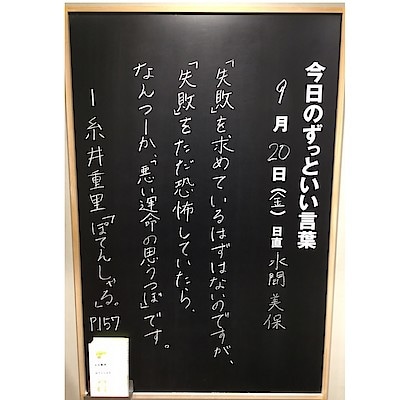 今日のずっといい言葉
9月20日(金) 日直 水間 美保
「失敗」を求めているはずはないのですが、
「失敗」をただ恐怖していたら、
なんつーか、「悪い運命の思うつぼ」です。
ー糸井重里「ぽてんしゃる。」P157